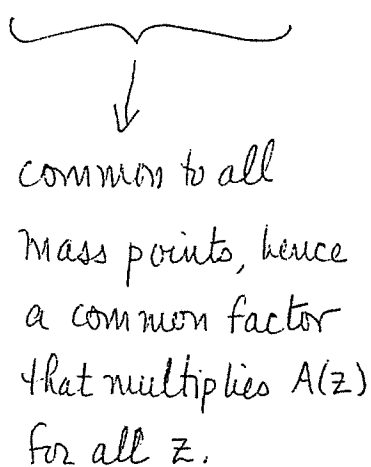 common to all
mass points, hence
a common factor
that multiplies A(z)
for all z.